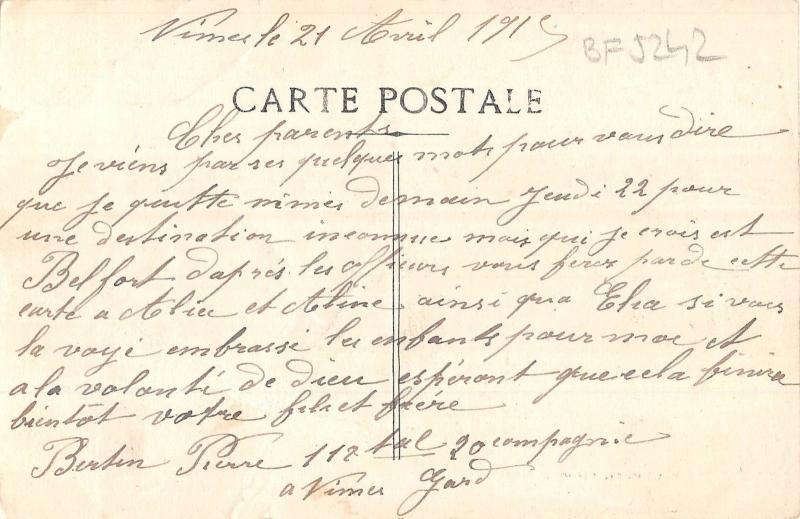 Nimes le 21 Avril 1915
BF 5242
CARTE POSTALE
Cher parents
Je viens par ses quelques mots pour vous dire
que je quitte nimes demain Jeudi 22 pour
une destination inconnue mais que je crois est
Belfort d'aprés les officiers vous ferez par de cette
carte a Alice et Aline ainsi qua si vous
la voyé embrassé les enfants pour moi et
a la volonté de dieu espéront que cela finira
bientôt votre fils et frére
Bertin Pierre 112 tal 20 compagnie
a Nimes Gard